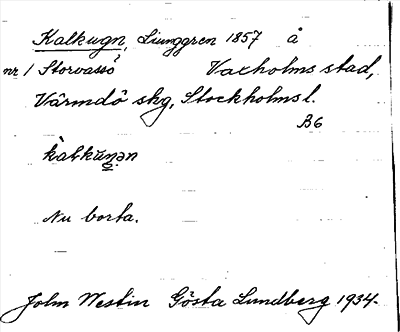 Kalkugn, Ljunggren 1857 å
nr 1 Storvassö Vaxholms stad,
Värmdö skg, Stockholms l.
B6
kàlkūŋən
Nu borta.
John Westin Gösta Lundberg 1934.